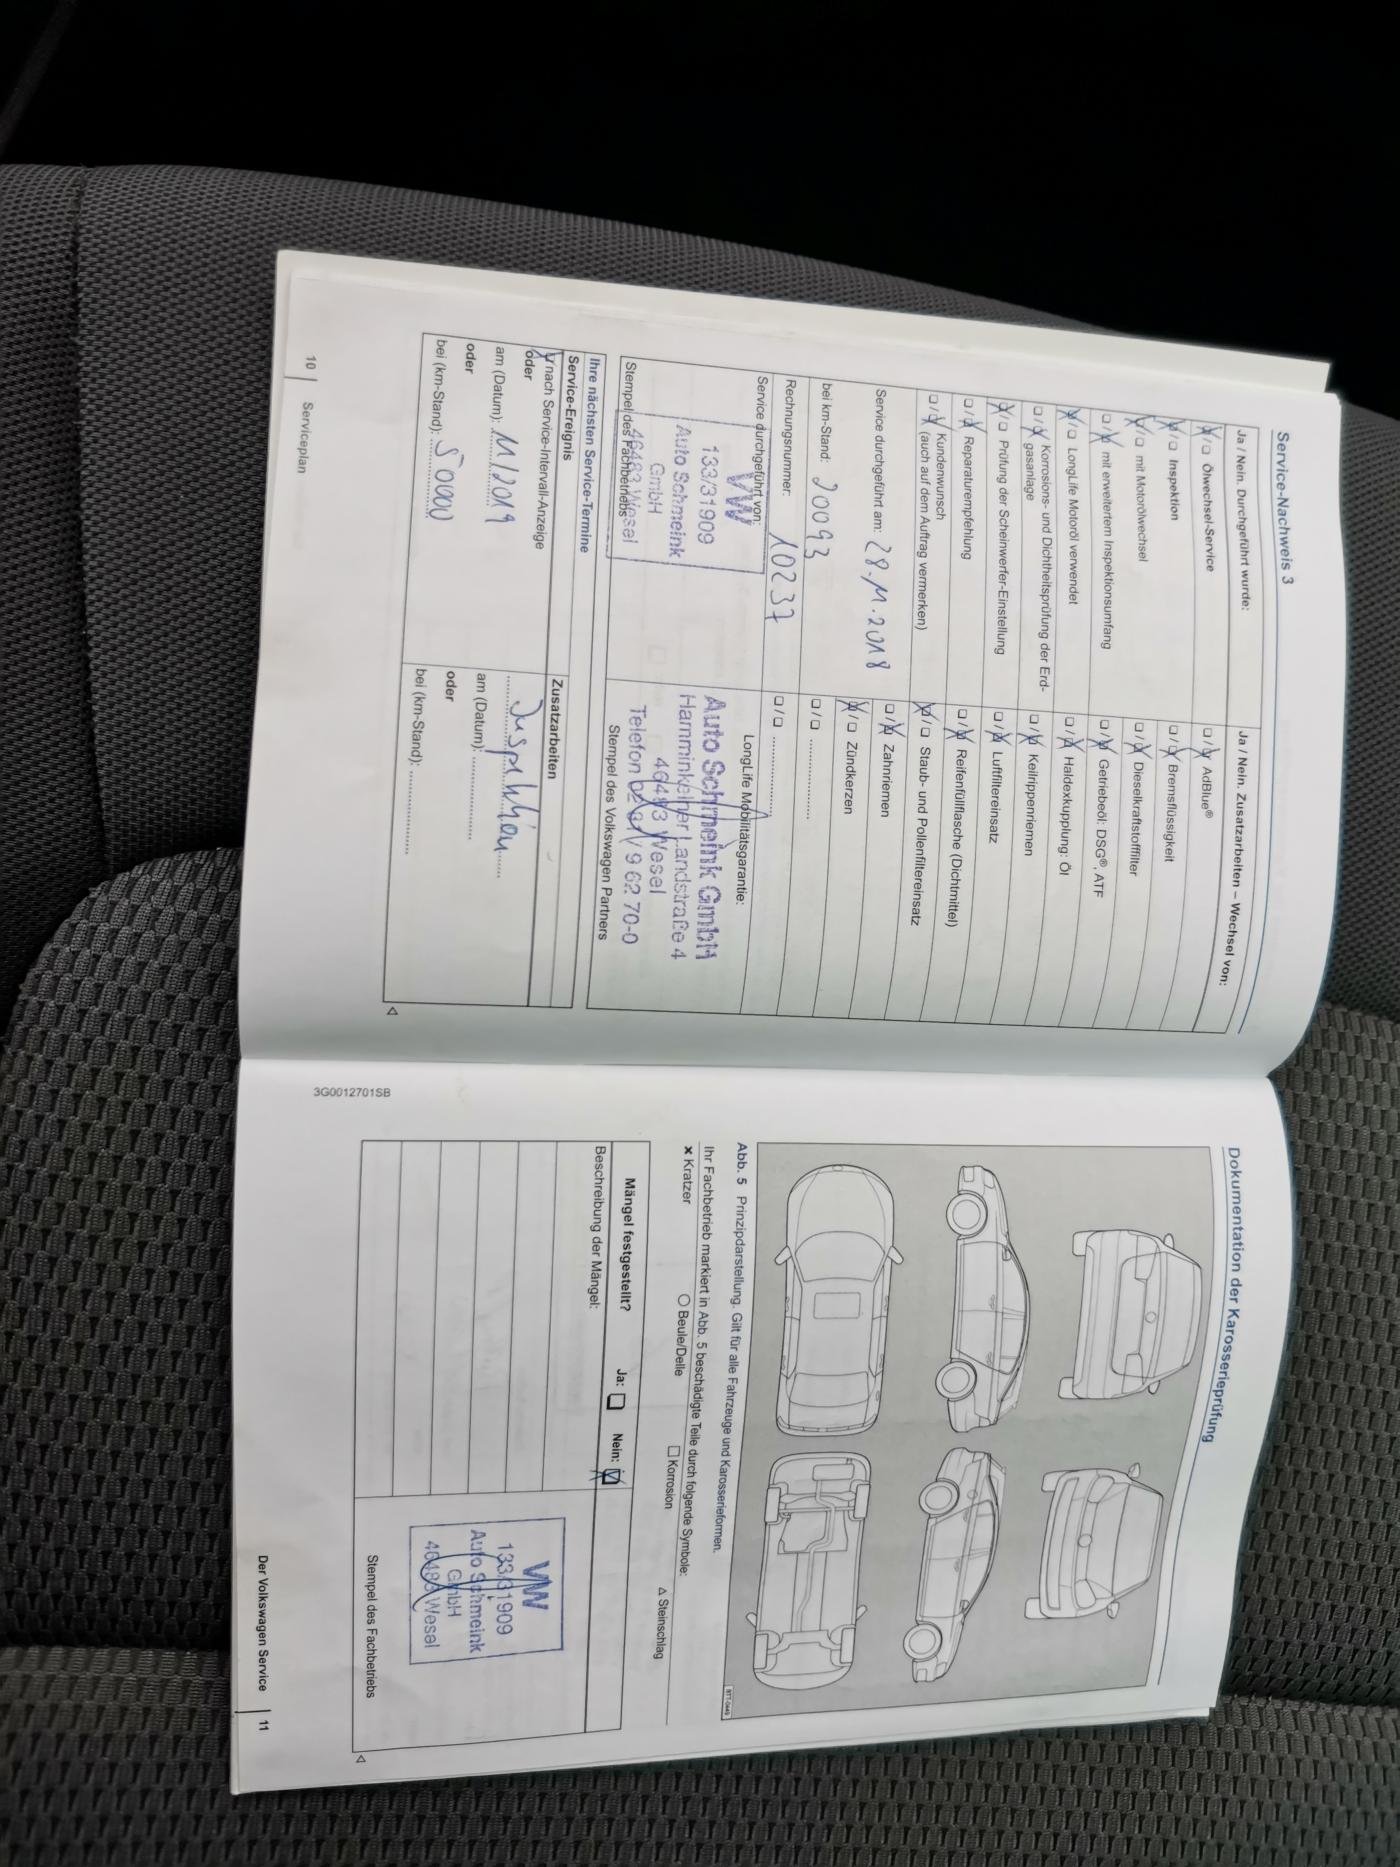 Service-Nachweis 3
Ja / Nein. Durchgeführt wurde:
Ölwechsel-Service
Inspektion
mit Motorölwechsel
mit erweitertem Inspektionsumfang
LongLife Motoröl verwendet
Korrosions- und Dichtheitsprüfung der Erd-
gasanlage
Prüfung der Scheinwerfer-Einstellung
Reparaturempfehlung
Kundenwunsch
(auch auf dem Auftrag vermerken)
Service durchgeführt am: 28.11.2018
bei km-Stand: 20093
Rechnungsnummer: 10237
Service durchgeführt von:
VW
133/31909
Auto Schmeink
GmbH
46483 Wesel
Stempel des Fachbetriebs
Ja / Nein. Zusatzarbeiten – Wechsel von:
AdBlue®
Bremsflüssigkeit
Dieselkraftstofffilter
Getriebeöl: DSG®, ATF
Haldexkupplung: Öl
Keilrippenriemen
Luftfiltereinsatz
Reifenfüllflasche (Dichtmittel)
Staub- und Pollenfiltereinsatz
Zahnriemen
Zündkerzen
LongLife Mobilitätsgarantie:
Auto Schmeink GmbH
Hamminkelner Landstraße 4
46483 Wesel
Telefon 02 81 / 9 62 70-0
Stempel des Volkswagen Partners
Ihre nächsten Service-Termine
Service-Ereignis
nach Service-Intervall-Anzeige
oder
am (Datum): 11/2019
oder
bei (km-Stand): 50000
Zusatzarbeiten
Inspektion
am (Datum):
oder
bei (km-Stand):
10 | Serviceplan
3G0012701SB
Dokumentation der Karosserieprüfung
BTT-0449
Abb. 5 Prinzipdarstellung. Gilt für alle Fahrzeuge und Karosserieformen.
Ihr Fachbetrieb markiert in Abb. 5 beschädigte Teile durch folgende Symbole:
× Kratzer ○ Beule/Delle □ Korrosion △ Steinschlag
Mängel festgestellt? Ja: Nein:
Beschreibung der Mängel:
VW
133/31909
Auto Schmeink
GmbH
46483 Wesel
Stempel des Fachbetriebs
Der Volkswagen Service | 11